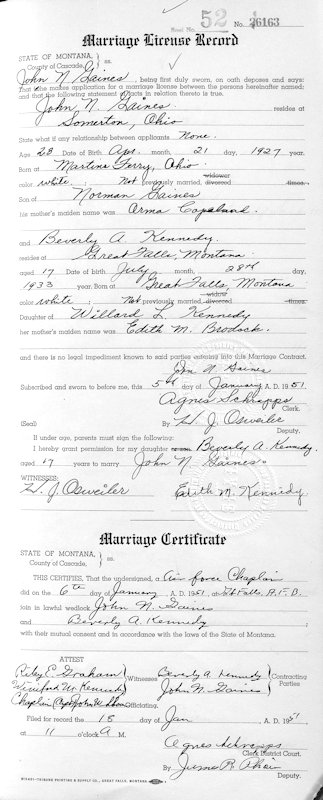 Reel No. 52 No. 26163
Marriage License Record
STATE OF MONTANA, County of Cascade, ss.
John N. Gaines, being first duly sworn, on oath deposes and says:
That he makes application for a marriage license between the persons hereinafter named;
and that the following statement of facts in relation thereto is true.
John N. Gaines resides at
Somerton, Ohio
State what if any relationship between applicants None.
Age 23 Date of Birth Apr. month, 21 day, 1927 year.
Born at Martins Ferry, Ohio
color white. Not previously married, widower divorced times.
Son of Norman Gaines
his mother's maiden name was Orma Copeland.
and Beverly A. Kennedy.
resides at Great Falls, Montana.
aged 17 Date of birth July month, 28th day,
1933 year. Born at Great Falls, Montana
color white. Not previously married, widow divorced times.
Daughter of Willard L. Kennedy
her mother's maiden name was Edith M. Brodock.
and there is no legal impediment known to said parties entering into this Marriage Contract.
John N. Gaines
Subscribed and sworn to before me, this 5th day of January A. D. 1951.
Agnes Schrapps
Clerk.
(Seal) By H. J. Osweiler
Deputy.
If under age, parents must sign the following:
I hereby grant permission for my daughter Beverly A. Kennedy.
aged 17 years to marry John N. Gaines.
WITNESSES:
H. J. Osweiler Edith M. Kennedy.
Marriage Certificate
STATE OF MONTANA, County of Cascade, ss.
THIS CERTIFIES, That the undersigned, a Air force Chaplain
did on the 6th day of January A. D. 1951 at Gt Falls, A.F.B.
join in lawful wedlock John N. Gaines
and Beverly A. Kennedy
with their mutual consent and in accordance with the laws of the State of Montana.
ATTEST
Riley C. Graham Witnesses Beverly A. Kennedy Contracting
Winifred M. John N. Gaines Parties
Chaplain John Officiating.
Filed for record the 15 day of Jan A. D. 1951
at 11 o'clock A M.
Agnes Schrapps
Clerk District Court.
By
Deputy.
TRIBUNE PRINTING & SUPPLY CO., GREAT FALLS, MONTANA